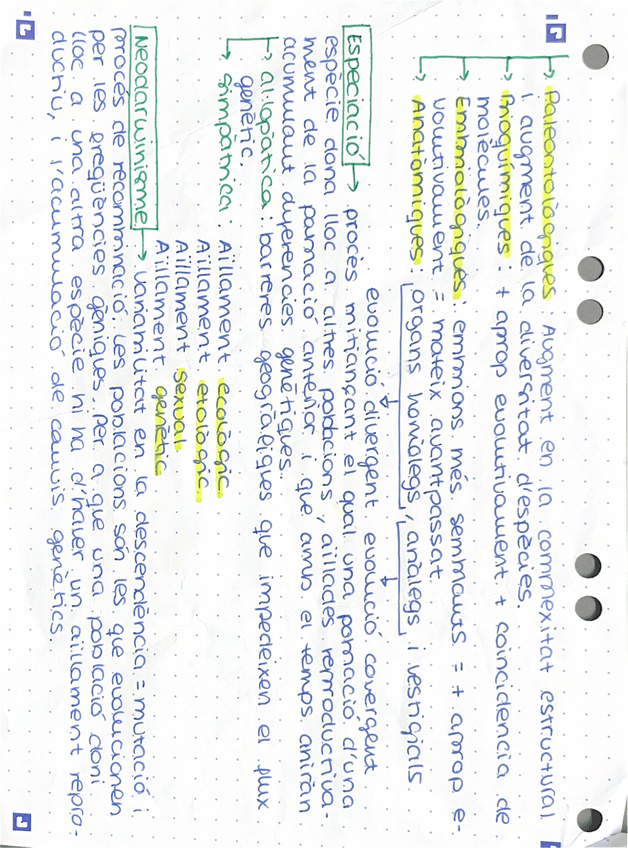 Paleontològiques Augment en la complexitat estructural
i augment de la diversitat d'espècies.
Bioquímiques: + aprop evolutivament + coincidencia de
molècules.
Embriològiques: embrions més semblants = + aprop e-
volutivament = mateix avantpassat.
Anatòmiques: organs homòlegs, anàlegs i vestigials
evolució divergent evolució covergent
Especiació procés mitjançant el qual una població d'una
espècie dona lloc a altres poblacions, aïllades reproductiva-
ment de la població anterior i que amb el temps aniràn
acumulant diferències genètiques.
al·lopàtica: barreres geogràfiques que impedeixen el flux
genètic.
simpàtrica: Aïllament ecològic.
Aïllament etològic.
Aïllament sexual
Aïllament genètic
Neodarwinisme variabilitat en la descendència = mutació i
procés de recombinació. Les poblacions són les que evolucionen
per les freqüències gèniques. Per a que una població doni
lloc a una altra espècie hi ha d'haver un aïllament repro-
ductiu, i l'acumulació de canvis genètics.